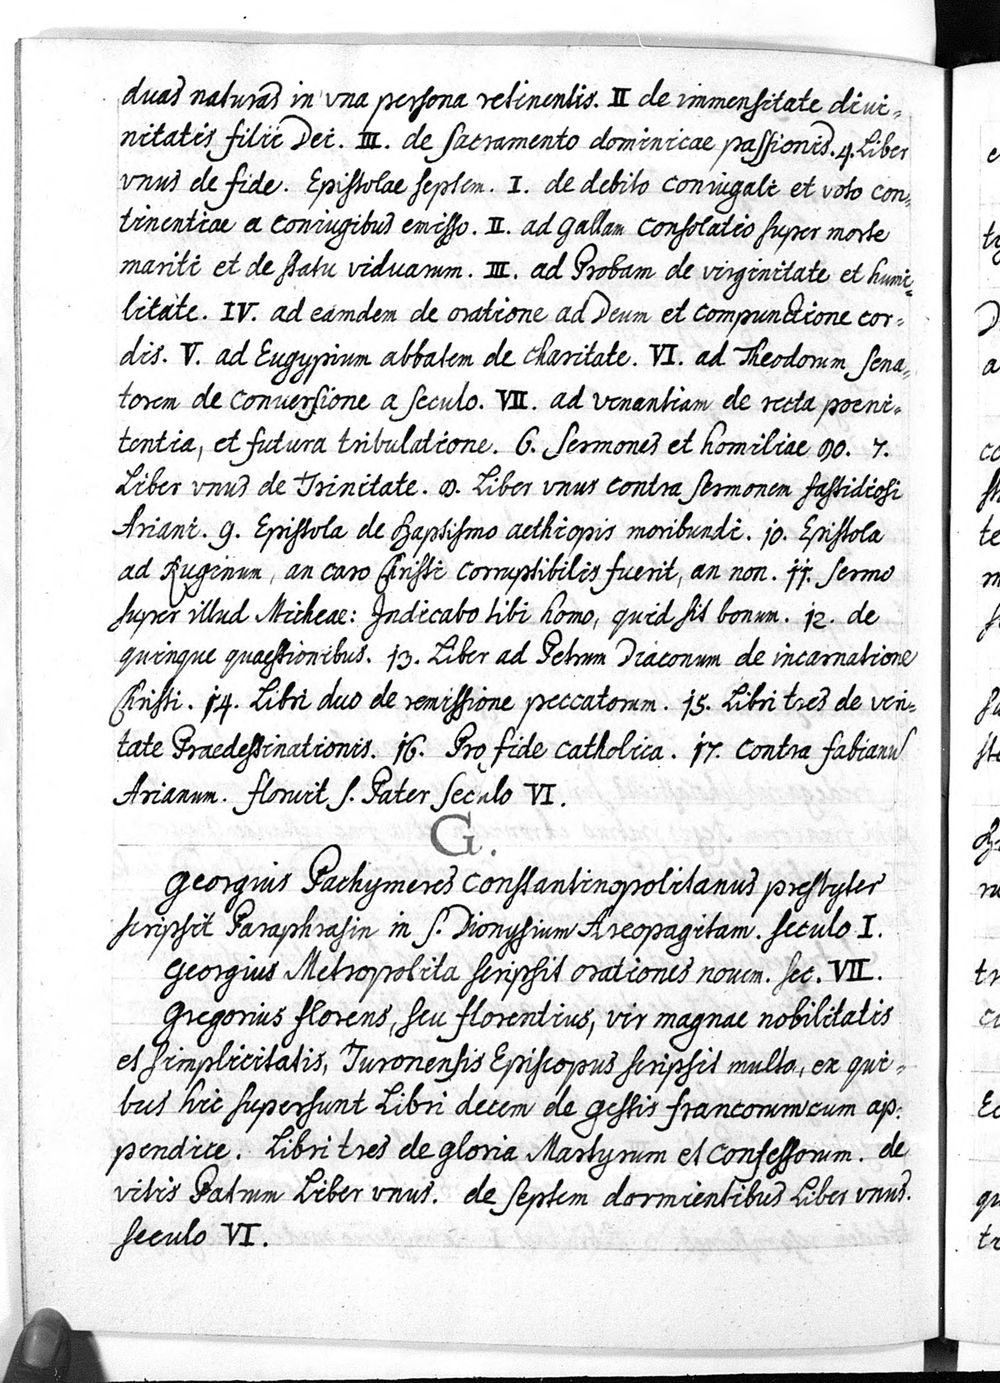 duas naturas in vna persona retinentis. II de immensitate divi-
nitatis filii Dei. III. de Sacramento dominicae passionis. 4. Liber
vnus de fide. Epistolae septem. I. de debito coniugali et voto con-
tinentiae a coniugibus emisso. II. ad Gallam consolatio super morte
mariti et de statu viduarum. III. ad Probam de virginitate et humi-
litate. IV. ad eamdem de oratione ad Deum et compunctione cor-
dis. V. ad Eugypium abbatem de charitate. VI. ad Theodorum Sena-
torem de conversione a seculo. VII. ad venantiam de recta poeni-
tentia, et futura tribulatione. 6. Sermones et homiliae 80. 7.
Liber vnus de Trinitate. 8. Liber vnus contra sermonem fastidiosi
Ariani. 9. Epistola de Baptismo aethiopis moribundi. 10. Epistola
ad Ruginum, an caro Christi corruptibilis fuerit, an non. 11. Sermo
super illud Micheae: Indicabo tibi homo, quid sit bonum. 12. de
quinque quaestionibus. 13. Liber ad Petrum Diaconum de incarnatione
Christi. 14. Libri duo de remissione peccatorum. 15. Libri tres de veri-
tate Praedestinationis. 16. Pro fide catholica. 17. contra fabianus
Arianum. floruit S. Pater seculo VI.
G.
Georgius Pachymeres Constantinopolitanus presbyter
scripsit Paraphrasin in S. Dionysium Areopagitam. seculo I.
Georgius Metropolita scripsit orationes novem. sec. VII.
Gregorius florens, seu florentius, vir magnae nobilitatis
et simplicitatis, Turonensis Episcopus scripsit multa, ex qui-
bus hic supersunt Libri decem de gestis francorum cum ap-
pendice. Libri tres de gloria Martyrum et Confessorum. de
vitis Patrum Liber vnus. de septem dormientibus Liber vnus.
seculo VI.